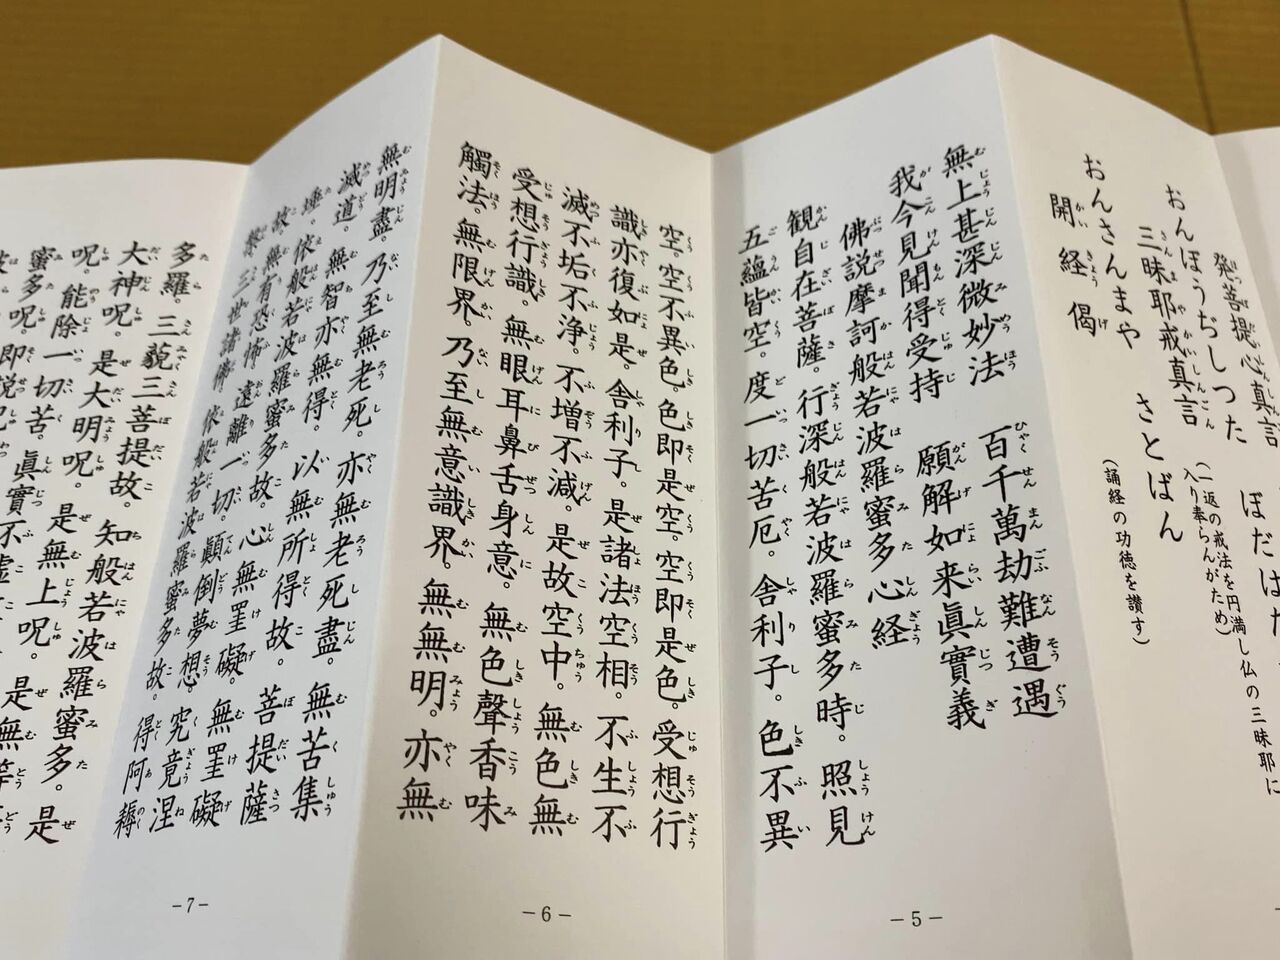 発菩提心真言
おんぼうぢしつた ぼだはだ
三昧耶戒真言
(一返の戒法を円満し仏の三昧耶に
入り奉らんがため)
おんさんまや さとばん
開経偈 (誦経の功徳を讃す)
無上甚深微妙法 百千萬劫難遭遇
我今見聞得受持 願解如来眞實義
佛説摩訶般若波羅蜜多心経
観自在菩薩。行深般若波羅蜜多時。照見
五蘊皆空。度一切苦厄。舎利子。色不異
-5-
空。空不異色。色即是空。空即是色。受想行
識亦復如是。舎利子。是諸法空相。不生不
滅不垢不浄。不増不減。是故空中。無色無
受想行識。無眼耳鼻舌身意。無色聲香味
觸法。無限界。乃至無意識界。無無明。亦無
-6-
無明盡。乃至無老死。亦無老死盡。無苦集
滅道。無智亦無得。以無所得故。菩提薩
埵。依般若波羅蜜多故。心無罣礙。無罣礙
故。無有恐怖。遠離一切。顛倒夢想。究竟涅
槃。三世諸佛。依般若波羅蜜多故。得阿耨
-7-
多羅。三藐三菩提故。知般若波羅蜜多。是
大神呪。是大明呪。是無上呪。是無等
呪。能除一切苦。眞實不虚
蜜多呪。即説呪